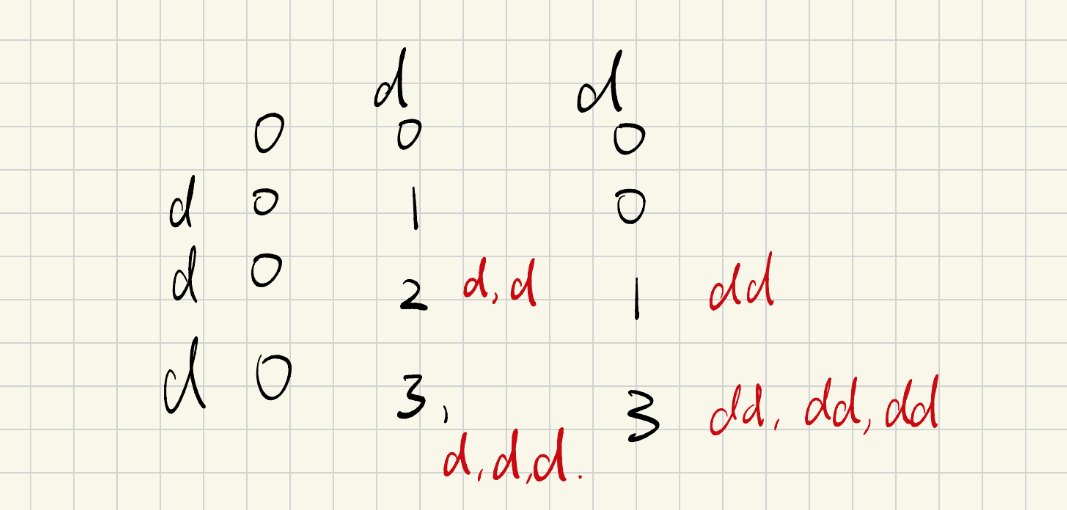 d d
0 0 0
d 0 1 0
d 0 2 d, d 1 dd
d 0 3, 3 dd, dd, dd
d, d, d.